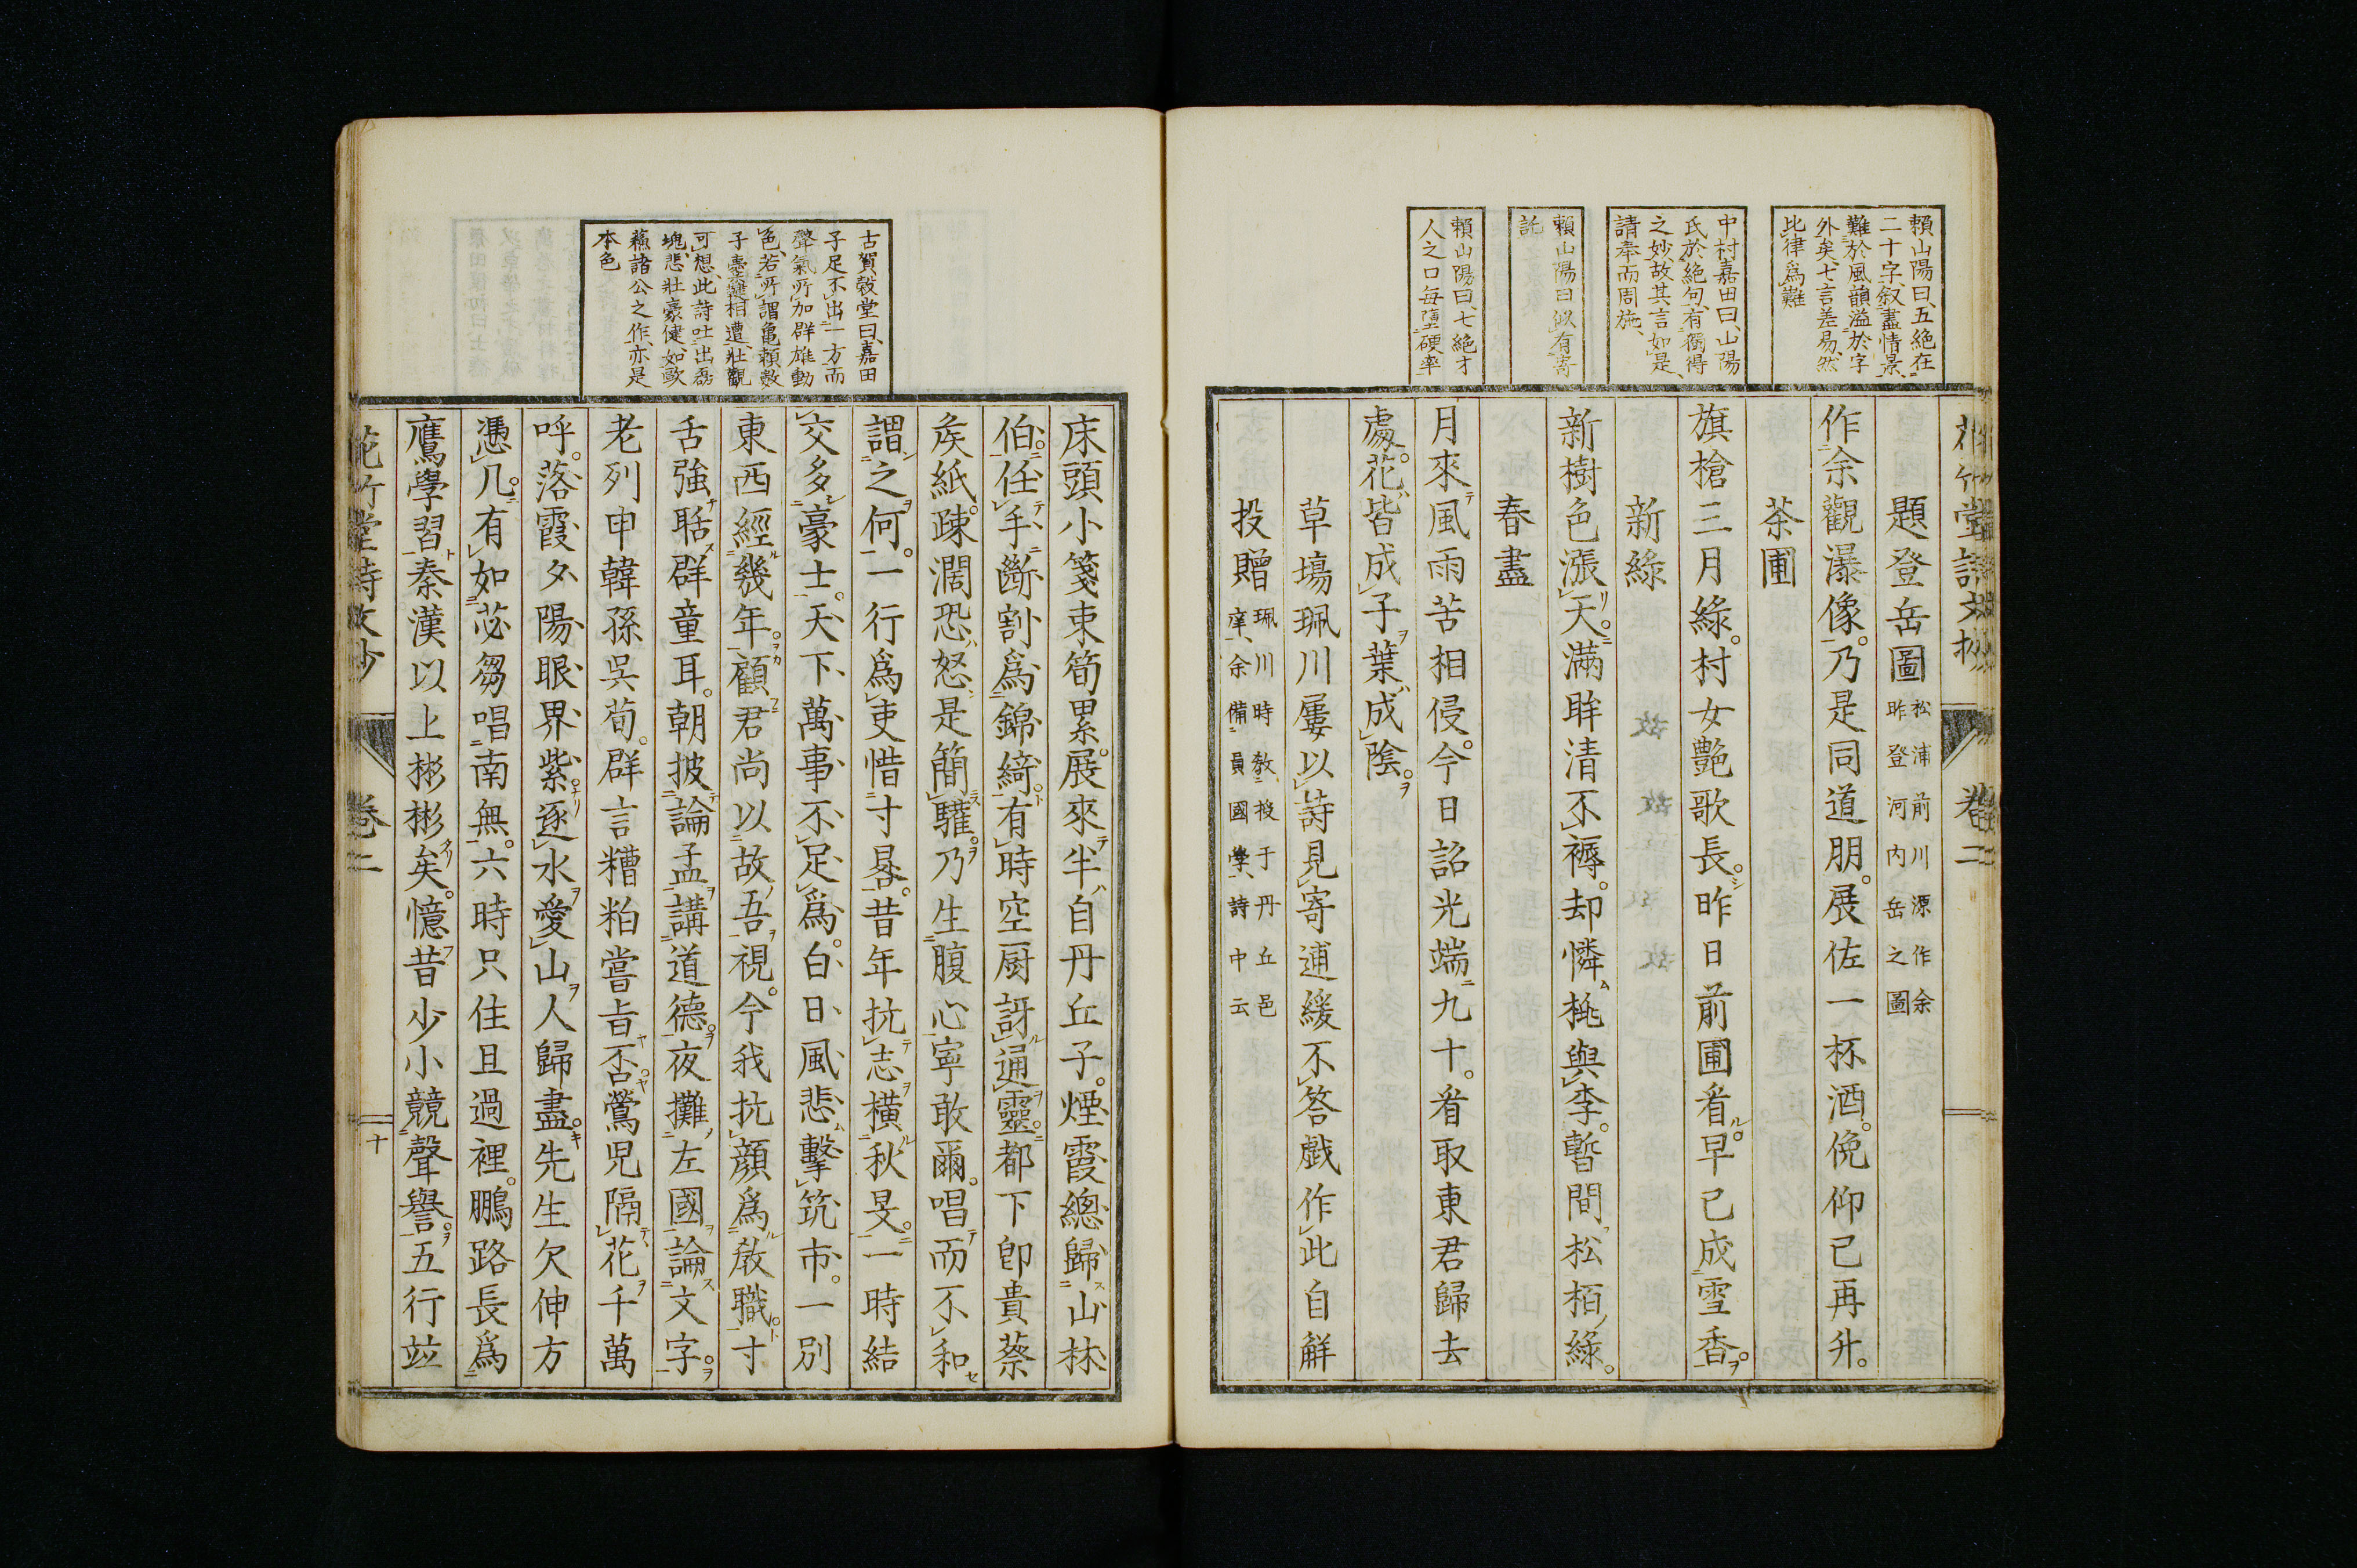 賴山陽曰、五絶在
二十字、叙盡情景、
難於風韻溢於字
外矣、七言差易、然
比律爲難
中村嘉田曰、山陽
氏於絶句、有獨得
之妙、故其言如是、
請奉而周施、
賴山陽曰似有寄
託
賴山陽曰、七絶才
人之口每墮硬率
題登岳圖 松浦前川源作余
昨登河内岳之圖
作余觀瀑像。乃是同道朋。展佐一杯酒。俛仰已再升。
茶圃
旗槍三月綠。村女艷歌長。昨日前圃看。早已成雪香。
新綠
新樹色漲天。滿眸清不褥。却憐桃與李。暫間松栢綠。
春盡
月來風雨苦相侵。今日韶光端九十。看取東君歸去
處。花皆成子葉成陰。
草塲珮川屢以詩見寄逋緩不答戲作此自解
投贈 珮川時敎授于丹丘邑
庠、余備員國學、詩中云
花竹堂詩文抄
卷二
古賀穀堂曰、嘉田
子足不出一方而
聲氣所加群雄動
色、若所謂亀頼數
子臺籏相遭、壯觀
可想、此詩吐出磊
塊、悲壯豪健、如歐
蘓諸公之作、亦是
本色
床頭小箋束筍累。展來半自丹丘子。煙霞總歸山林
伯。任手斷割爲錦綺。有時空厨訝通靈。都下卽貴蔡
矦紙。踈濶恐怒是簡驩。乃生腹心寧敢爾。唱而不和
謂之何。一行爲吏惜寸晷。昔年抗志橫秋旻。一時結
交多豪士。天下萬事不足爲。白日風悲擊筑市。一別
東西經幾年。顧君尚以故吾視。今我抗顏爲敎職。寸
舌強聒群童耳。朝披論孟講道德。夜攤左國論文字。
老列申韓孫吳荀。群言糟粕嘗旨否。鶯児隔花千萬
呼。落霞夕陽眼界紫。逐水愛山人歸盡。先生欠伸方
憑几。有如苾芻唱南無。六時只住且過裡。鵬路長爲
鷹學習。秦漢以上彬彬矣。憶昔少小競聲譽。五行竝
花竹堂詩文抄
卷二
十